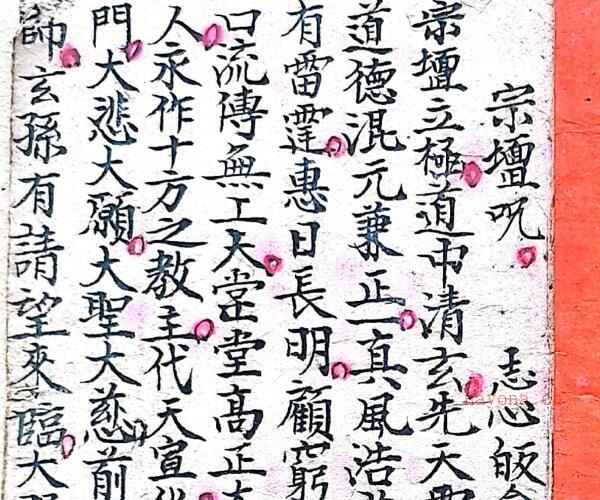 宗壇咒 志心皈
宗壇立極道中清玄先天
道德混元兼正一真風浩
有雷霆惠日長明顧窮
口流傳無工大棠堂高正
人永作十方之教主代天宣
門大悲大願大聖大慈前
帥玄孫有請望來臨大